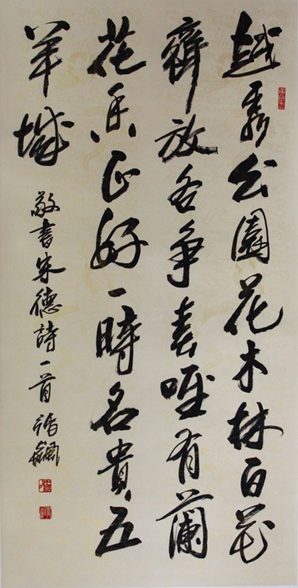 越秀公園花木林百花
齊放各爭春唯有蘭
花香正好一時名貴五
羊城
敬書朱德詩一首